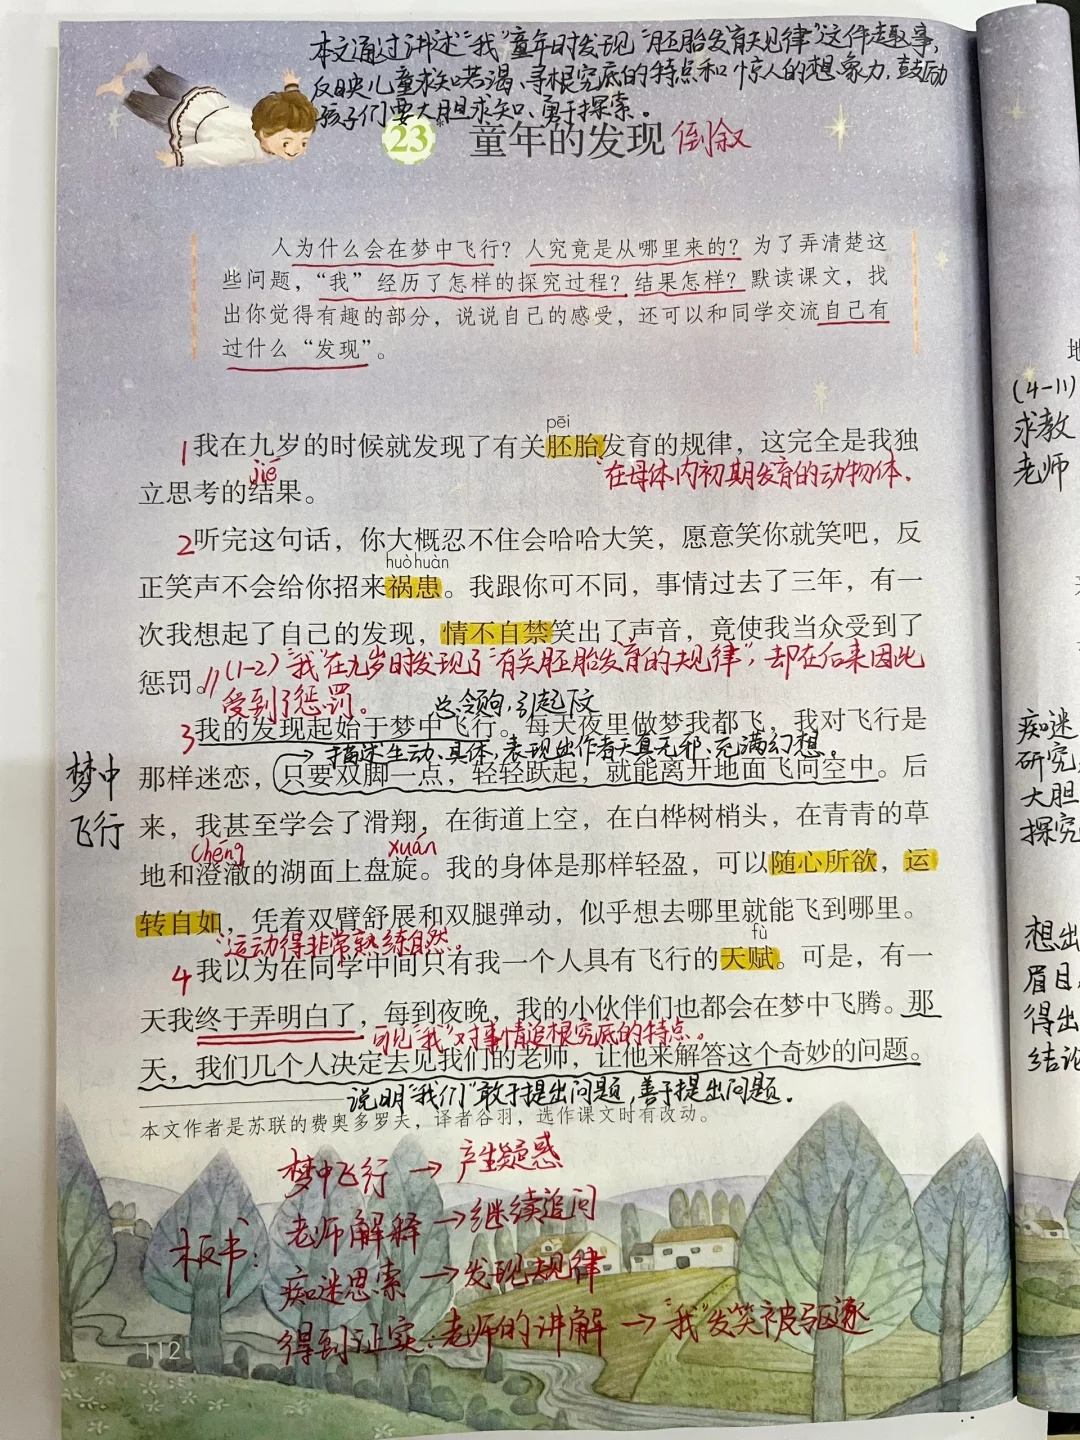 本文通过讲述“我”童年时发现“胚胎发育规律”这件趣事,
反映儿童求知若渴、寻根究底的特点和惊人的想象力,鼓励
孩子们要大胆求知、勇于探索。
23 童年的发现 倒叙
人为什么会在梦中飞行？人究竟是从哪里来的？为了弄清楚这
些问题，“我”经历了怎样的探究过程？结果怎样？默读课文，找
出你觉得有趣的部分，说说自己的感受，还可以和同学交流自己有
过什么“发现”。
pēi
1我在九岁的时候就发现了有关胚胎发育的规律，这完全是我独
jié
在母体内初期发育的动物体.
立思考的结果。
2听完这句话，你大概忍不住会哈哈大笑，愿意笑你就笑吧，反
huò huàn
正笑声不会给你招来祸患。我跟你可不同，事情过去了三年，有一
次我想起了自己的发现，情不自禁笑出了声音，竟使我当众受到了
惩罚。// (1-2)“我”在九岁时发现了“有关胚胎发育的规律”,却在后来因此
受到了惩罚。
总领句,引起下文
3我的发现起始于梦中飞行。每天夜里做梦我都飞，我对飞行是
→描述生动、具体,表现出作者天真无邪、充满幻想.
梦中
飞行
那样迷恋，只要双脚一点，轻轻跃起，就能离开地面飞向空中。后
来，我甚至学会了滑翔，在街道上空，在白桦树梢头，在青青的草
chéng
xuán
地和澄澈的湖面上盘旋。我的身体是那样轻盈，可以随心所欲，运
转自如，凭着双臂舒展和双腿弹动，似乎想去哪里就能飞到哪里。
运动得非常熟练自然。
fù
4我以为在同学中间只有我一个人具有飞行的天赋。可是，有一
天我终于弄明白了，每到夜晚，我的小伙伴们也都会在梦中飞腾。那
可见“我”对事情追根究底的特点。
天，我们几个人决定去见我们的老师，让他来解答这个奇妙的问题。
说明“我们”敢于提出问题,善于提出问题.
本文作者是苏联的费奥多罗夫，译者谷羽，选作课文时有改动。
板书:
梦中飞行→产生疑惑
老师解释→继续追问
痴迷思索→发现规律
得到证实:老师的讲解→“我”发笑被驱逐
112
(4-11)
求教
老师
痴迷
研究
大胆
探究
想出
眉目
得出
结论